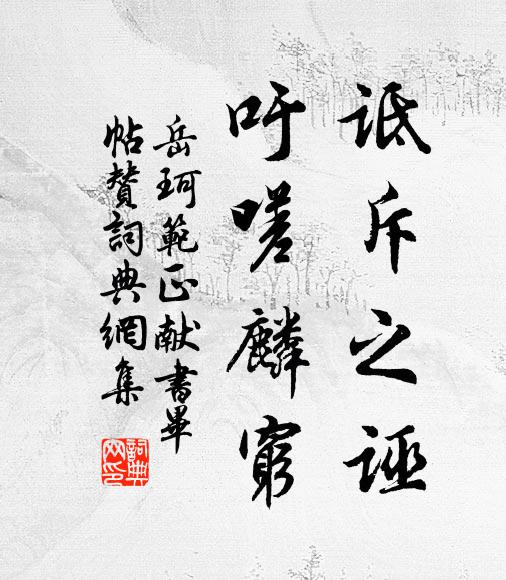 詆斥之誣
吁嗟麟窮
岳珂範正献書畢
帖贊詞典網集
詞典网印